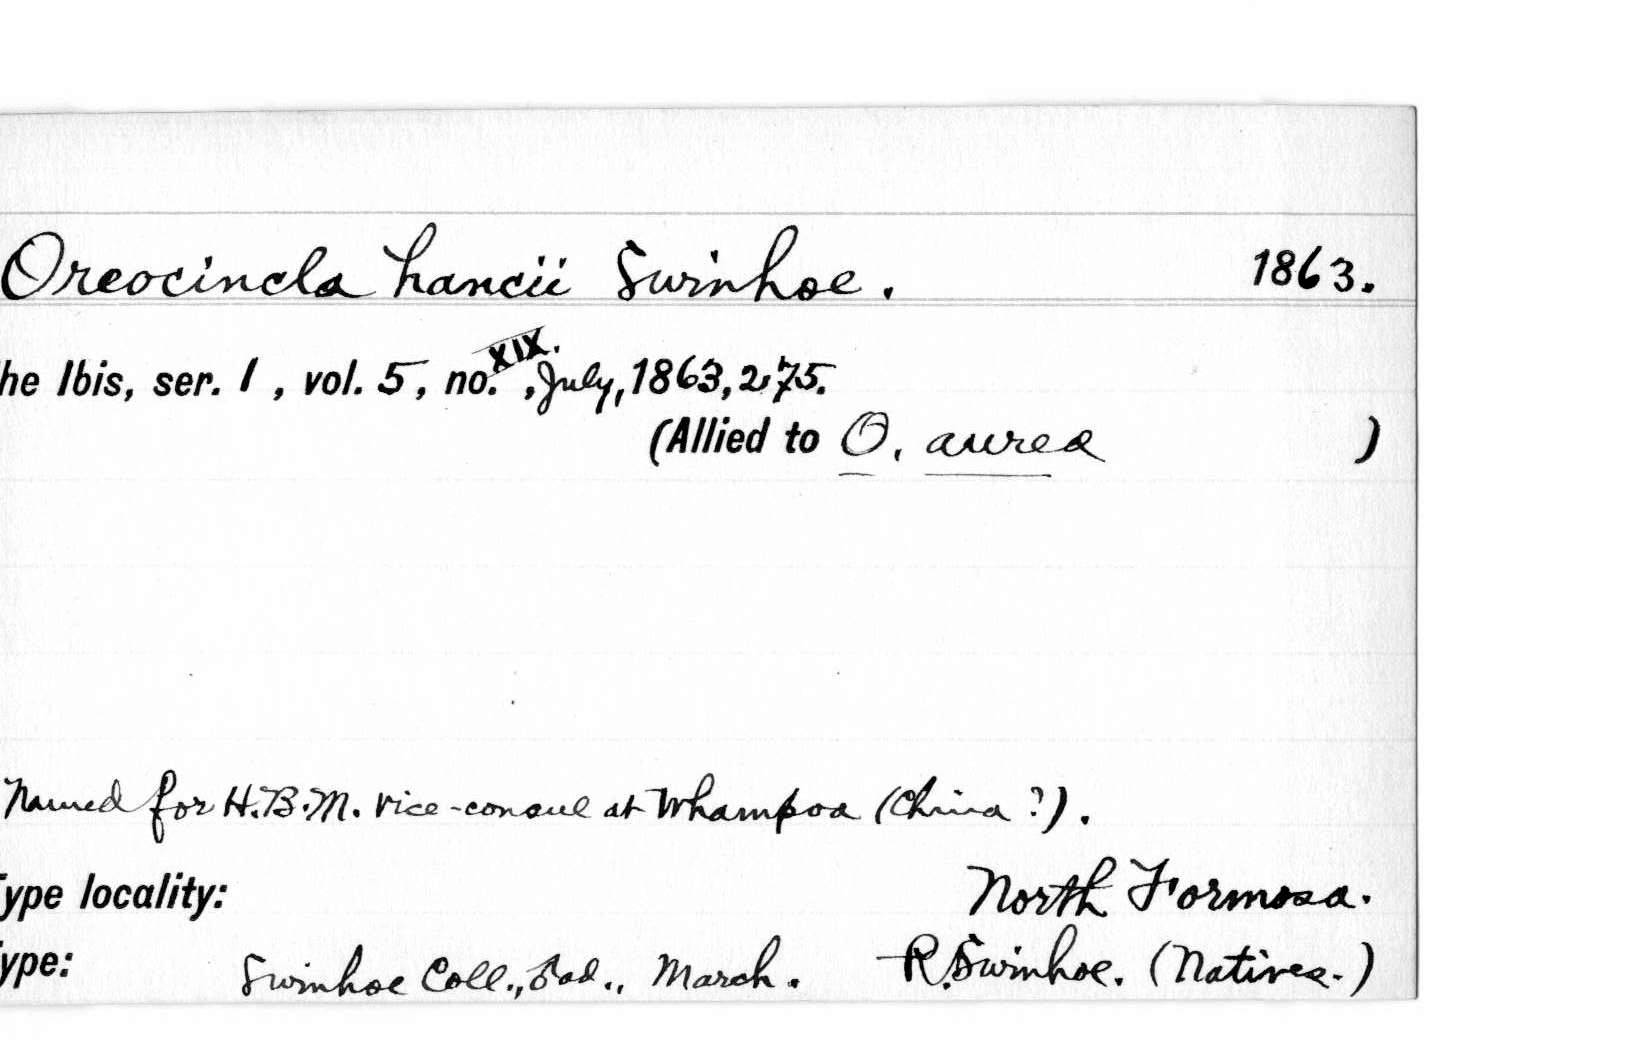 Oreocincla hancii Swinhoe. 1863.
he Ibis, ser. 1, vol. 5, no. XIX., July, 1863, 275.
(Allied to O. aurea )
Named for H.B.M. vice-consul at Whampoa (China ?).
Type locality: North Formosa.
ype: Swinhoe Coll., ad., March. R. Swinhoe. (Natives.)